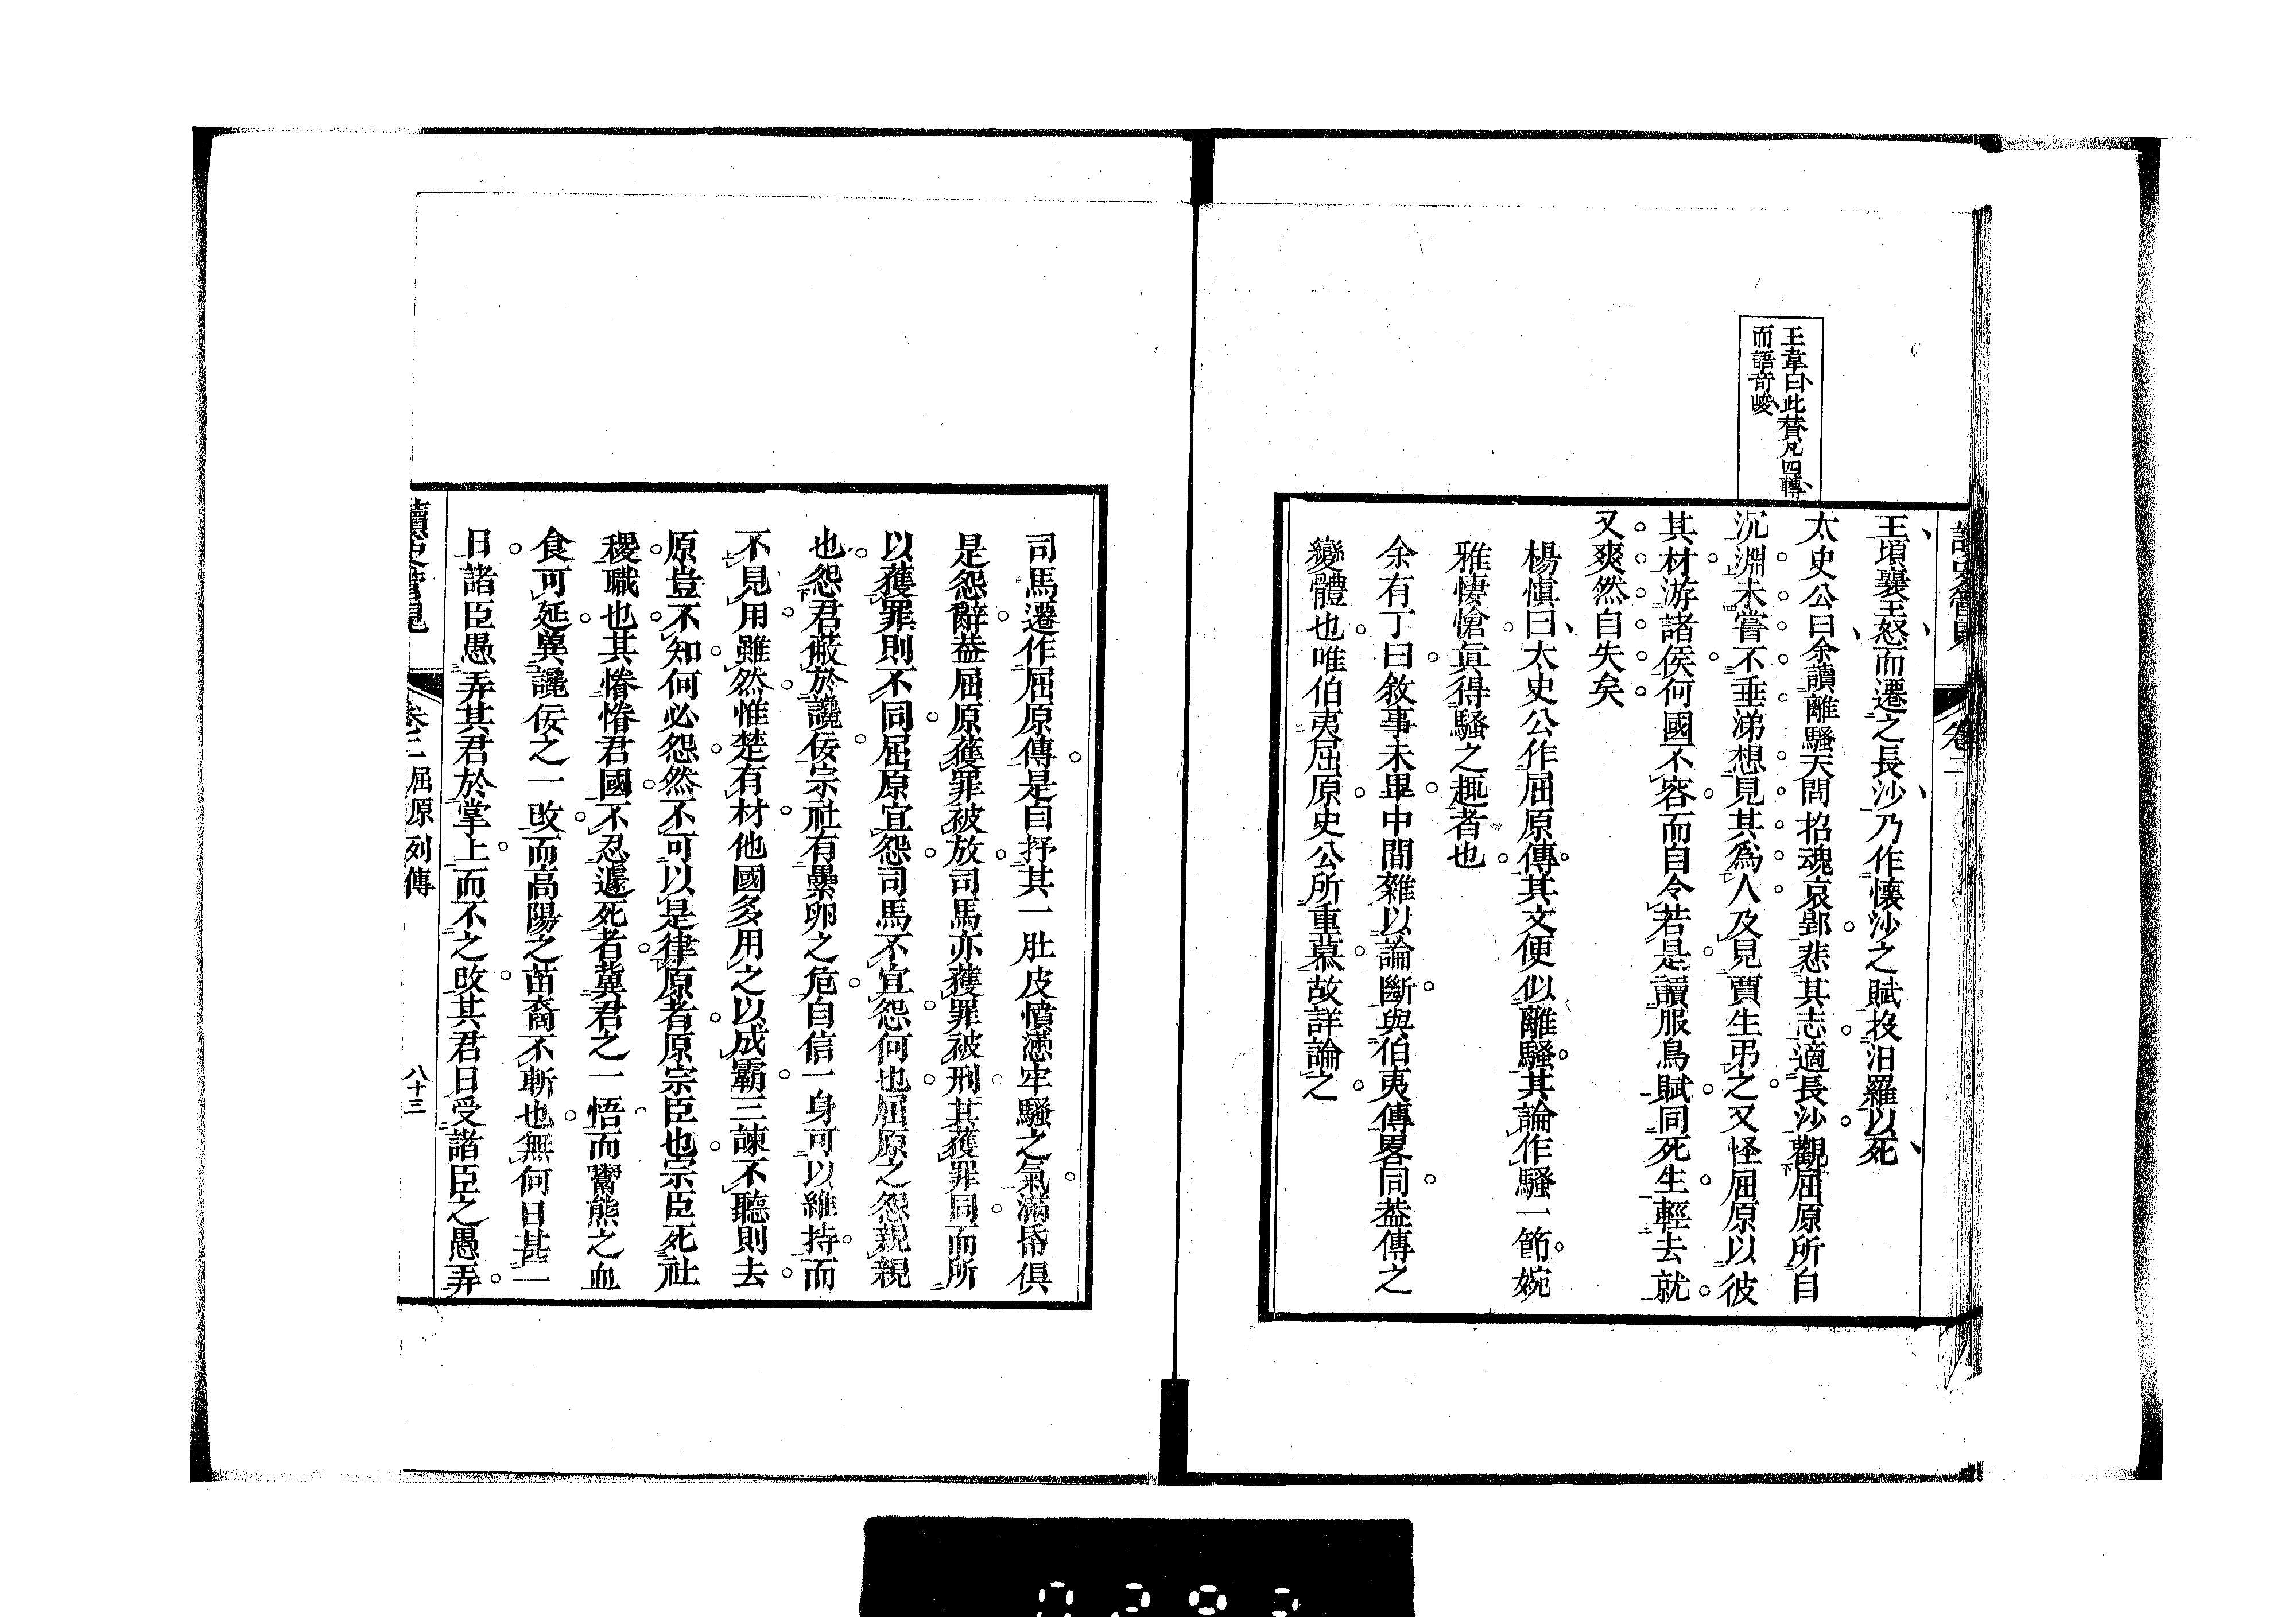 王韋曰此贊凡四轉
而語竒峻
卷二
王頃襄王怒而遷之長沙乃作懷沙之賦投汨羅以死
太史公曰余讀離騷天問招魂哀郢悲其志適長沙觀屈原所自
沉淵未嘗不垂涕想見其爲人及見賈生弔之又怪屈原以彼
其材游諸侯何國不容而自令若是讀服鳥賦同死生輕去就
又爽然自失矣
楊愼曰太史公作屈原傳其文便似離騷其論作騷一節婉
雅悽愴眞得騷之趣者也
余有丁曰敘事未畢中間雜以論斷與伯夷傳畧同葢傳之
變體也唯伯夷屈原史公所重慕故詳論之
司馬遷作屈原傳是自抒其一肚皮憤懣牢騷之氣滿帋俱
是怨辭葢屈原獲罪被放司馬亦獲罪被刑其獲罪同而所
以獲罪則不同屈原宜怨司馬不宜怨何也屈原之怨親親
也怨君蔽於讒佞宗社有纍卵之危自信一身可以維持而
不見用雖然惟楚有材他國多用之以成霸三諫不聽則去
原豈不知何必怨然不可以是律原者原宗臣也宗臣死社
稷職也其惓惓君國不忍遽死者冀君之一悟而鬻熊之血
食可延冀讒佞之一改而高陽之苗裔不斬也無何日甚一
日諸臣愚弄其君於掌上而不之改其君日受諸臣之愚弄
讀史管見 卷二 屈原列傳 八十三